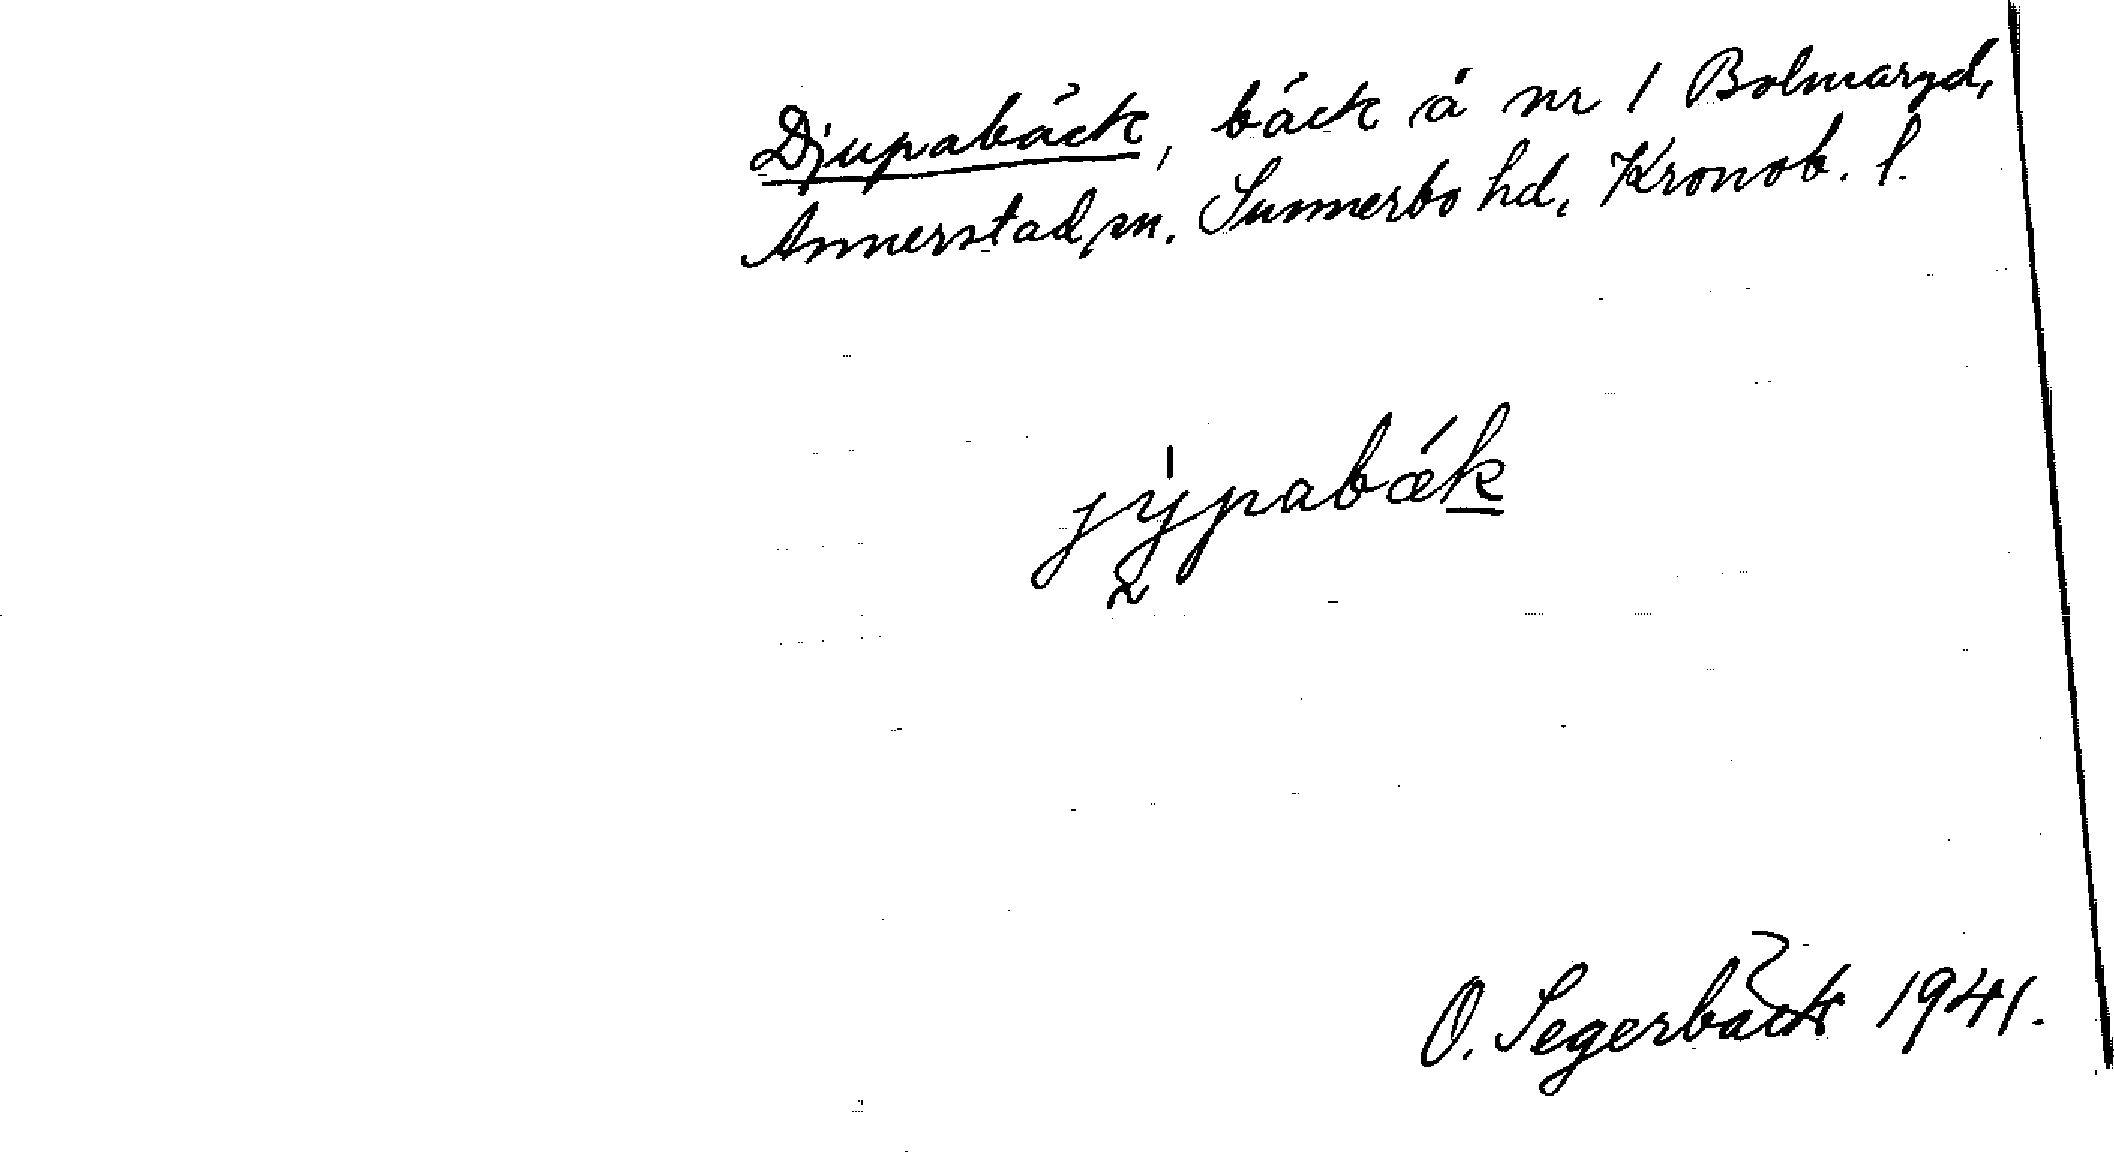 Djupabäck, bäck å nr 1 Bolmaryd,
Annerstad sn. Sunnerbo hd, Kronob. l.
jypabǽk
O. Segerbäck 1941.